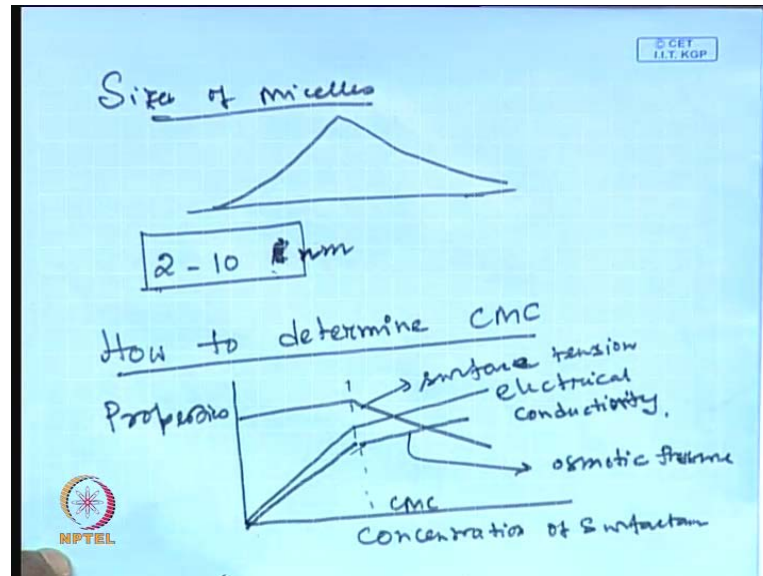 © CET
I.I.T. KGP
Sizes of micelles
2 - 10 nm
How to determine CMC
Properties
surface tension
electrical
conductivity.
osmotic pressure
CMC
Concentration of Surfactant
NPTEL